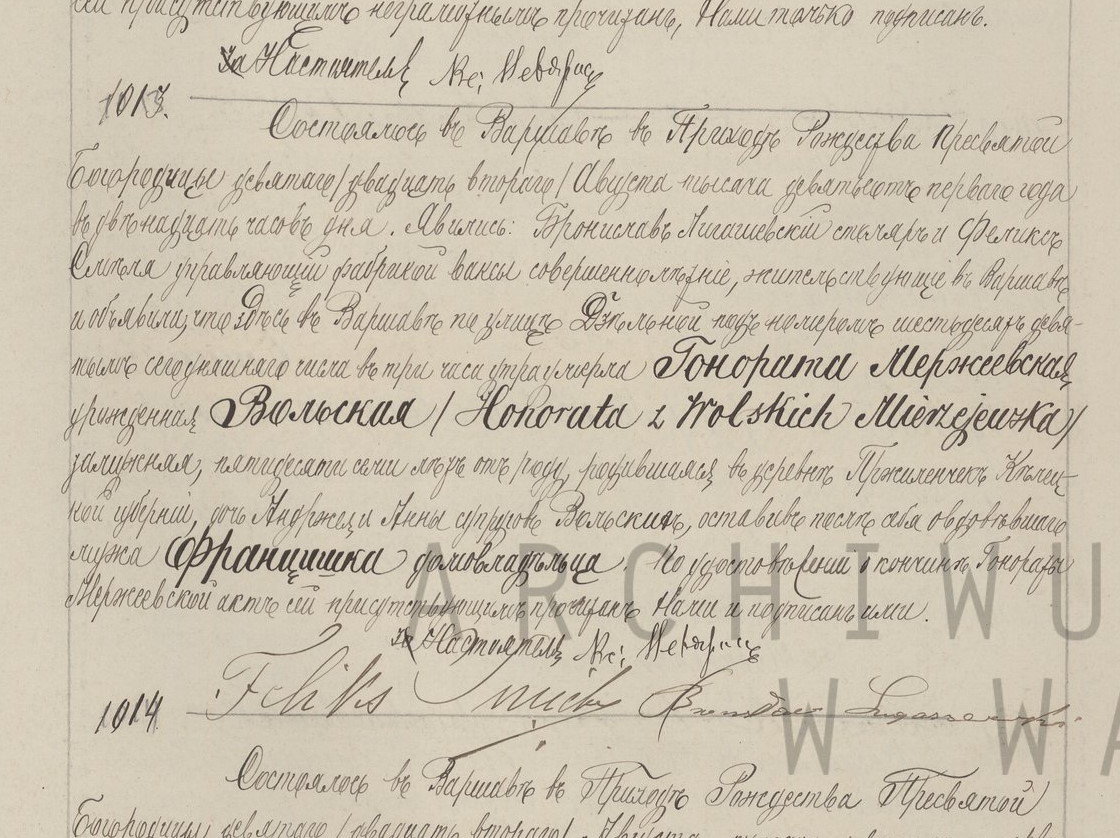 сей присутствующимъ неграмотнымъ прочитанъ, Нами только подписанъ.
За Настоятеля Кс:
1013.
Состоялось въ Варшавѣ въ Приходѣ Рождества Пресвятой
Богородицы девятаго/двадцать втораго/ Августа тысяча девятьсотъ перваго года
въ двѣнадцать часовъ дня. Явились: Брониславъ Лигашевскій столяръ и Феликсъ
управляющій фабрикой ваксы совершеннолѣтніе, жительствующіе въ Варшавѣ
и объявили, что здѣсь въ Варшавѣ по улицѣ Дзѣльной подъ номеромъ шестьдесятъ девя-
тымъ сегодняшняго числа въ три часа утра умерла Гонората Мержеевская
урожденная Вольская /Honorata z Wolskich Mierzejewska/
замужняя, пятидесяти семи лѣтъ отъ роду, родившаяся въ деревнѣ Кѣлец-
кой губерніи, дочь Андржея и Анны супруговъ Вольскихъ, оставивъ послѣ себя овдовѣвшаго
мужа Францишка домовладѣльца. По удостовѣреніи о кончинѣ Гонораты
Мержеевской актъ сей присутствующимъ прочитанъ Нами и подписанъ ими.
За Настоятеля Кс:
Feliks
1014
Состоялось въ Варшавѣ въ Приходѣ Рождества Пресвятой
Богородицы девятаго/двадцать втораго/ Августа
ARCHIWU
W WA